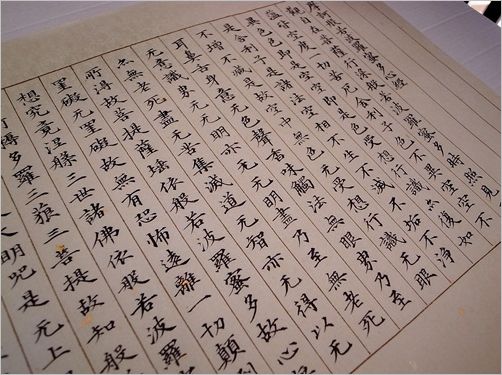 摩訶般若波羅蜜多心經
觀自在菩薩行深般若波羅蜜多時照見
蘊皆空度一切苦厄舍利子色不異空空不
異色色即是空空即是色受想行識亦復如
是舍利子是諸法空相不生不滅不垢不淨
不增不減是故空中無色无受想行識无眼
耳鼻舌身意无色聲香味觸法無眼界乃至
无意識界无无明亦无无明盡乃至無老死
亦無老死盡无苦集滅道无智亦无得以无
所得故菩提薩埵依般若波羅蜜多故心
罣礙无罣礙故無有恐怖遠離一切顛
想究竟涅槃三世諸佛依般若波羅
耨多羅三藐三菩提故知般
大明咒是无上